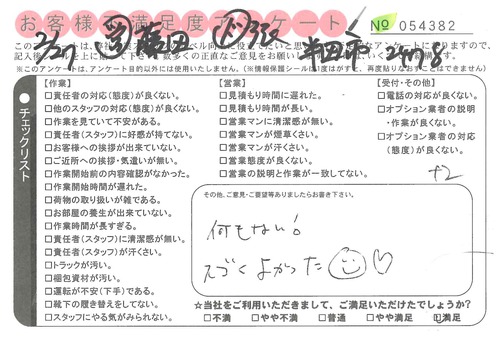 お客様満足度アンケート
№ 054382
記入後
※このアンケートは、アンケート目的以外には使用いたしません。(※情報保護シールは1度はがすと、再度貼りなおすことはできません)
2/27
チェックリスト
【作業】
□責任者の対応(態度)が良くない。
□他のスタッフの対応(態度)が良くない。
□作業を見ていて不安がある。
□責任者(スタッフ)に好感が持てない。
□お客様への挨拶が出来ていない。
□ご近所への挨拶・気遣いが無い。
□作業開始前の内容確認がなかった。
□作業開始時間が遅れた。
□荷物の取り扱いが雑である。
□お部屋の養生が出来ていない。
□作業時間が長すぎる。
□責任者(スタッフ)に清潔感が無い。
□責任者(スタッフ)が汗くさい。
□トラックが汚い。
□梱包資材が汚い。
□運転が不安(下手)である。
□靴下の履き替えをしてない。
□スタッフにやる気がみられない。
【営業】
□見積もり時間に遅れた。
□見積もり時間が長い。
□営業マンに清潔感が無い。
□営業マンが煙草くさい。
□営業マンが汗くさい。
□営業態度が良くない。
□営業の説明と作業が一致してない。
【受付・その他】
□電話の対応が良くない。
□オプション業者の説明・作業が良くない。
□オプション業者の対応(態度)が良くない。
+2
その他、ご意見・ご要望等ありましたらお書き下さい。
何もない!
スゴくよかった
☆当社をご利用いただきまして、ご満足いただけたでしょうか?
□不満 □やや不満 □普通 □やや満足 □満足